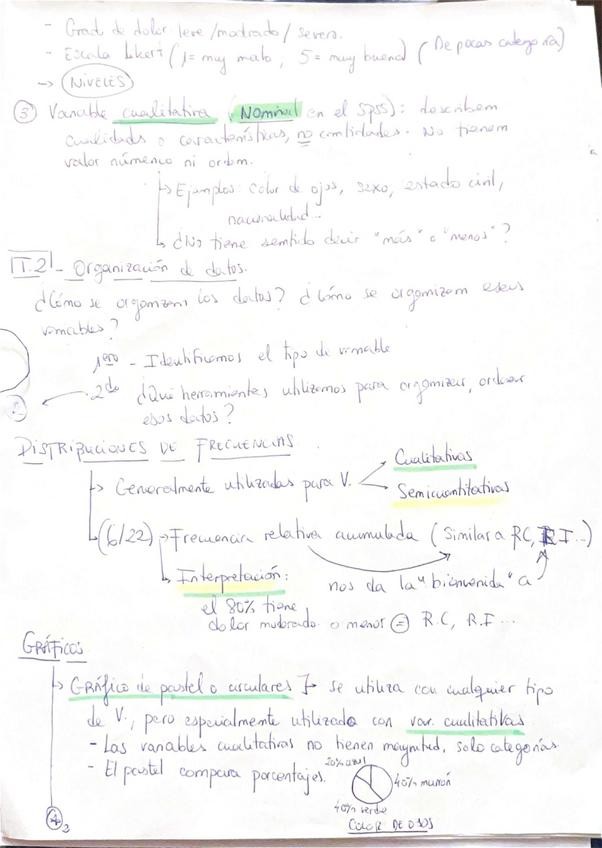 - Grad de dolor leve / modrado / severo.
- Escala Likert (1 = muy malo, 5 = muy bueno) (De pocas categoría)
→ NIVELES
3 Variable cualitativa (Nominal en el SPSS): describen
cualidades o características, no cantidades. No tienen
valor númenco ni orden.
↳ Ejemplos: color de ojos, sexo, estado civil,
nacionalidad...
↳ ¿No tiene sentido decir "más" o "menos"?
T.2 - Organización de datos.
¿Cómo se organizan los datos? ¿Cómo se organizan esas
variables?
1ero - Identificamos el tipo de variable
2do ¿Qué herramientas utilizamos para organizar, ordenar
esos datos?
DISTRIBUCIONES DE FRECUENCIAS
↳ Generalmente utilizadas para V. Cualitativas
Semicuantitativas
↳ (6/22) → Frecuencia relativa acumulada (Similar a RC, RI...)
↳ Interpretación: nos da la "bienvenida" a
el 80% tiene
dolor moderado o menor = R.C, R.I...
GRÁFICOS
↳ GRÁfico de pastel o circulares } → se utiliza con cualquier tipo
de V., pero especialmente utilizado con var. cualitativas
- Las variables cualitativas no tienen magnitud, solo categorías.
- El pastel compara porcentajes.
20% azul
40% marrón
40% verde
COLOR DE OJOS